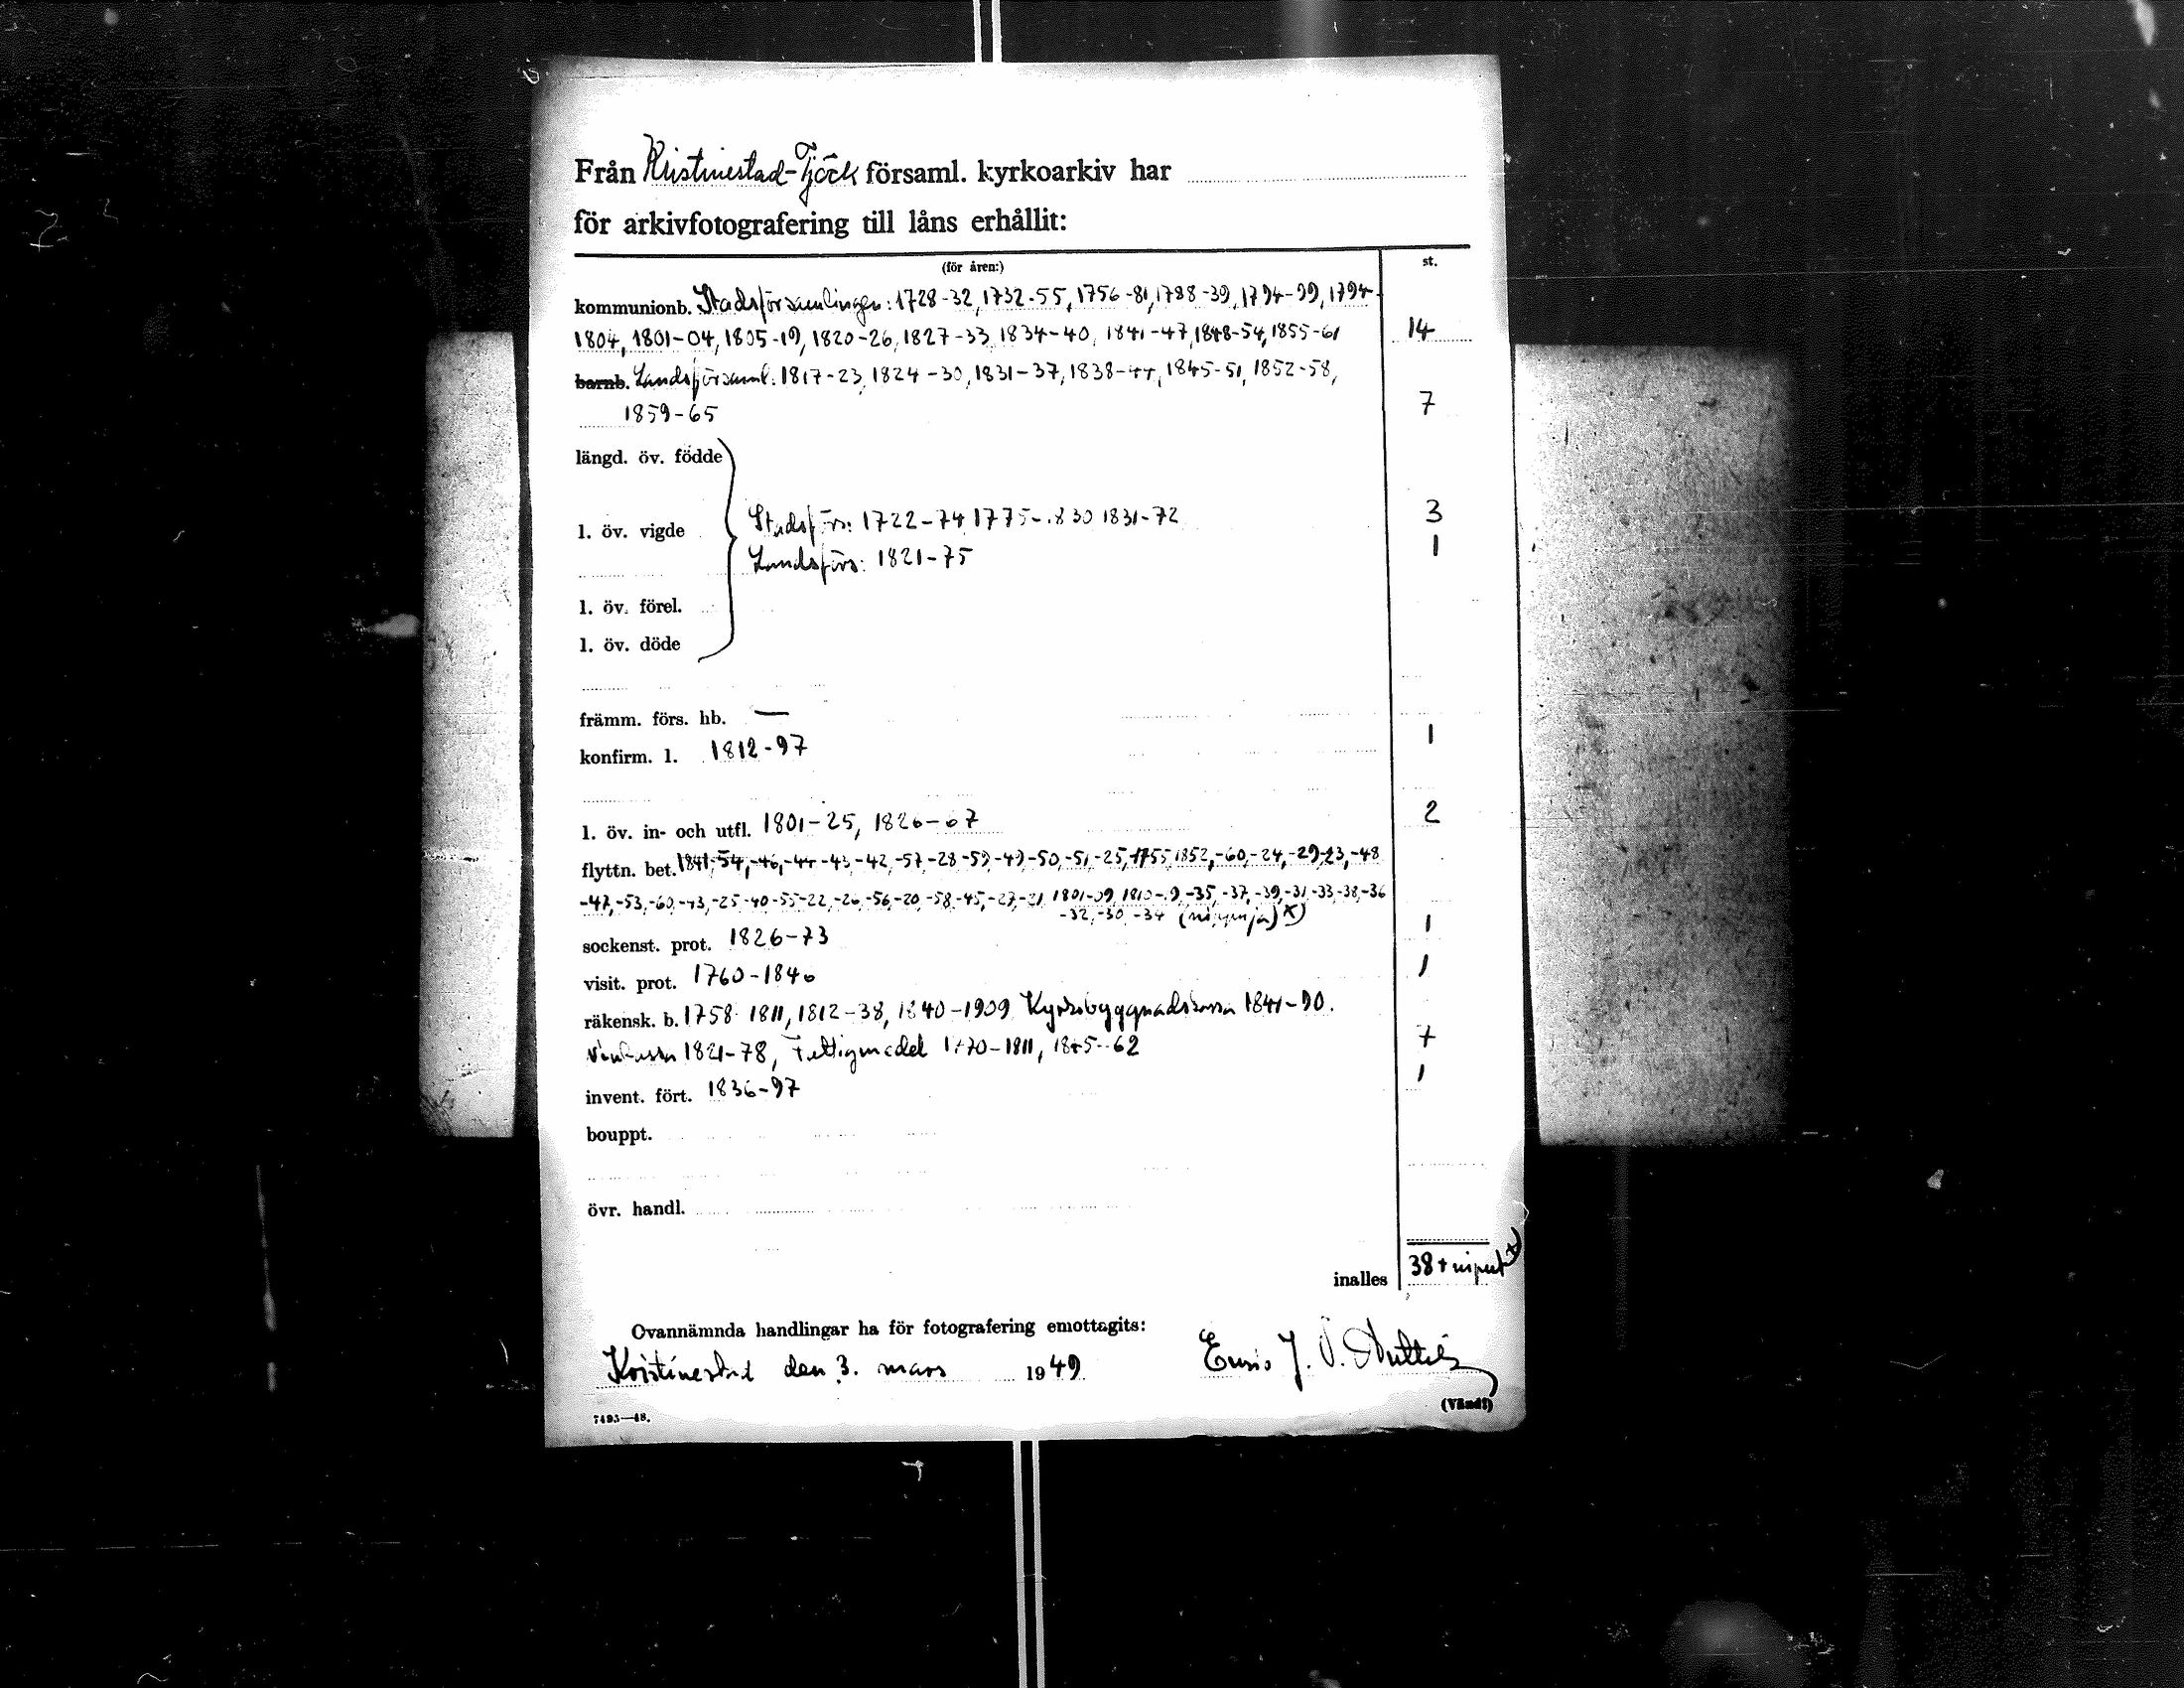 Från Kristinestad-Tjöck församl. kyrkoarkiv har
för arkivfotografering till låns erhållit:
(för åren:) st.
kommunionb. Stadsförsamlingen: 1728-32, 1732-55, 1756-81, 1788-39, 1794-99, 1794-
1804, 1801-04, 1805-19, 1820-26, 1827-33, 1834-40, 1841-47, 1848-54, 1855-61 14
barnb. Landsförsaml: 1817-23, 1824-30, 1831-37, 1838-44, 1845-51, 1852-58,
1859-65 7
längd. öv. födde
l. öv. vigde Stadsförs: 1722-74 1775-1830 1831-72 3
Landsförs: 1821-75 1
l. öv. förel.
l. öv. döde
främm. förs. hb. —
konfirm. l. 1812-97 1
l. öv. in- och utfl. 1801-25, 1826-67 2
flyttn. bet. 1841,-54,-46,-44-43,-42,-57,-28-59,-49,-50,-51,-25,-1755, 1852,-60,-24,-29,-23,-48
-47,-53,-60,-43,-25-40-55-22,-26,-56,-20,-58,-45,-27,-21, 1801-09, 1810-19,-35,-37,-39,-31,-33,-38,-36
-32,-30,-34 x)
sockenst. prot. 1826-73 1
visit. prot. 1760-1840 1
räkensk. b. 1758-1811, 1812-38, 1840-1909 Kyrkobyggnadskassa 1841-90.
1821-78, Fattigmedel 1770-1811, 1845-62 7
invent. fört. 1836-97 1
bouppt.
övr. handl.
inalles 38 +
Ovannämnda handlingar ha för fotografering emottagits:
Kristinestad den 3. mars 1949
7493—48. (Vänd!)